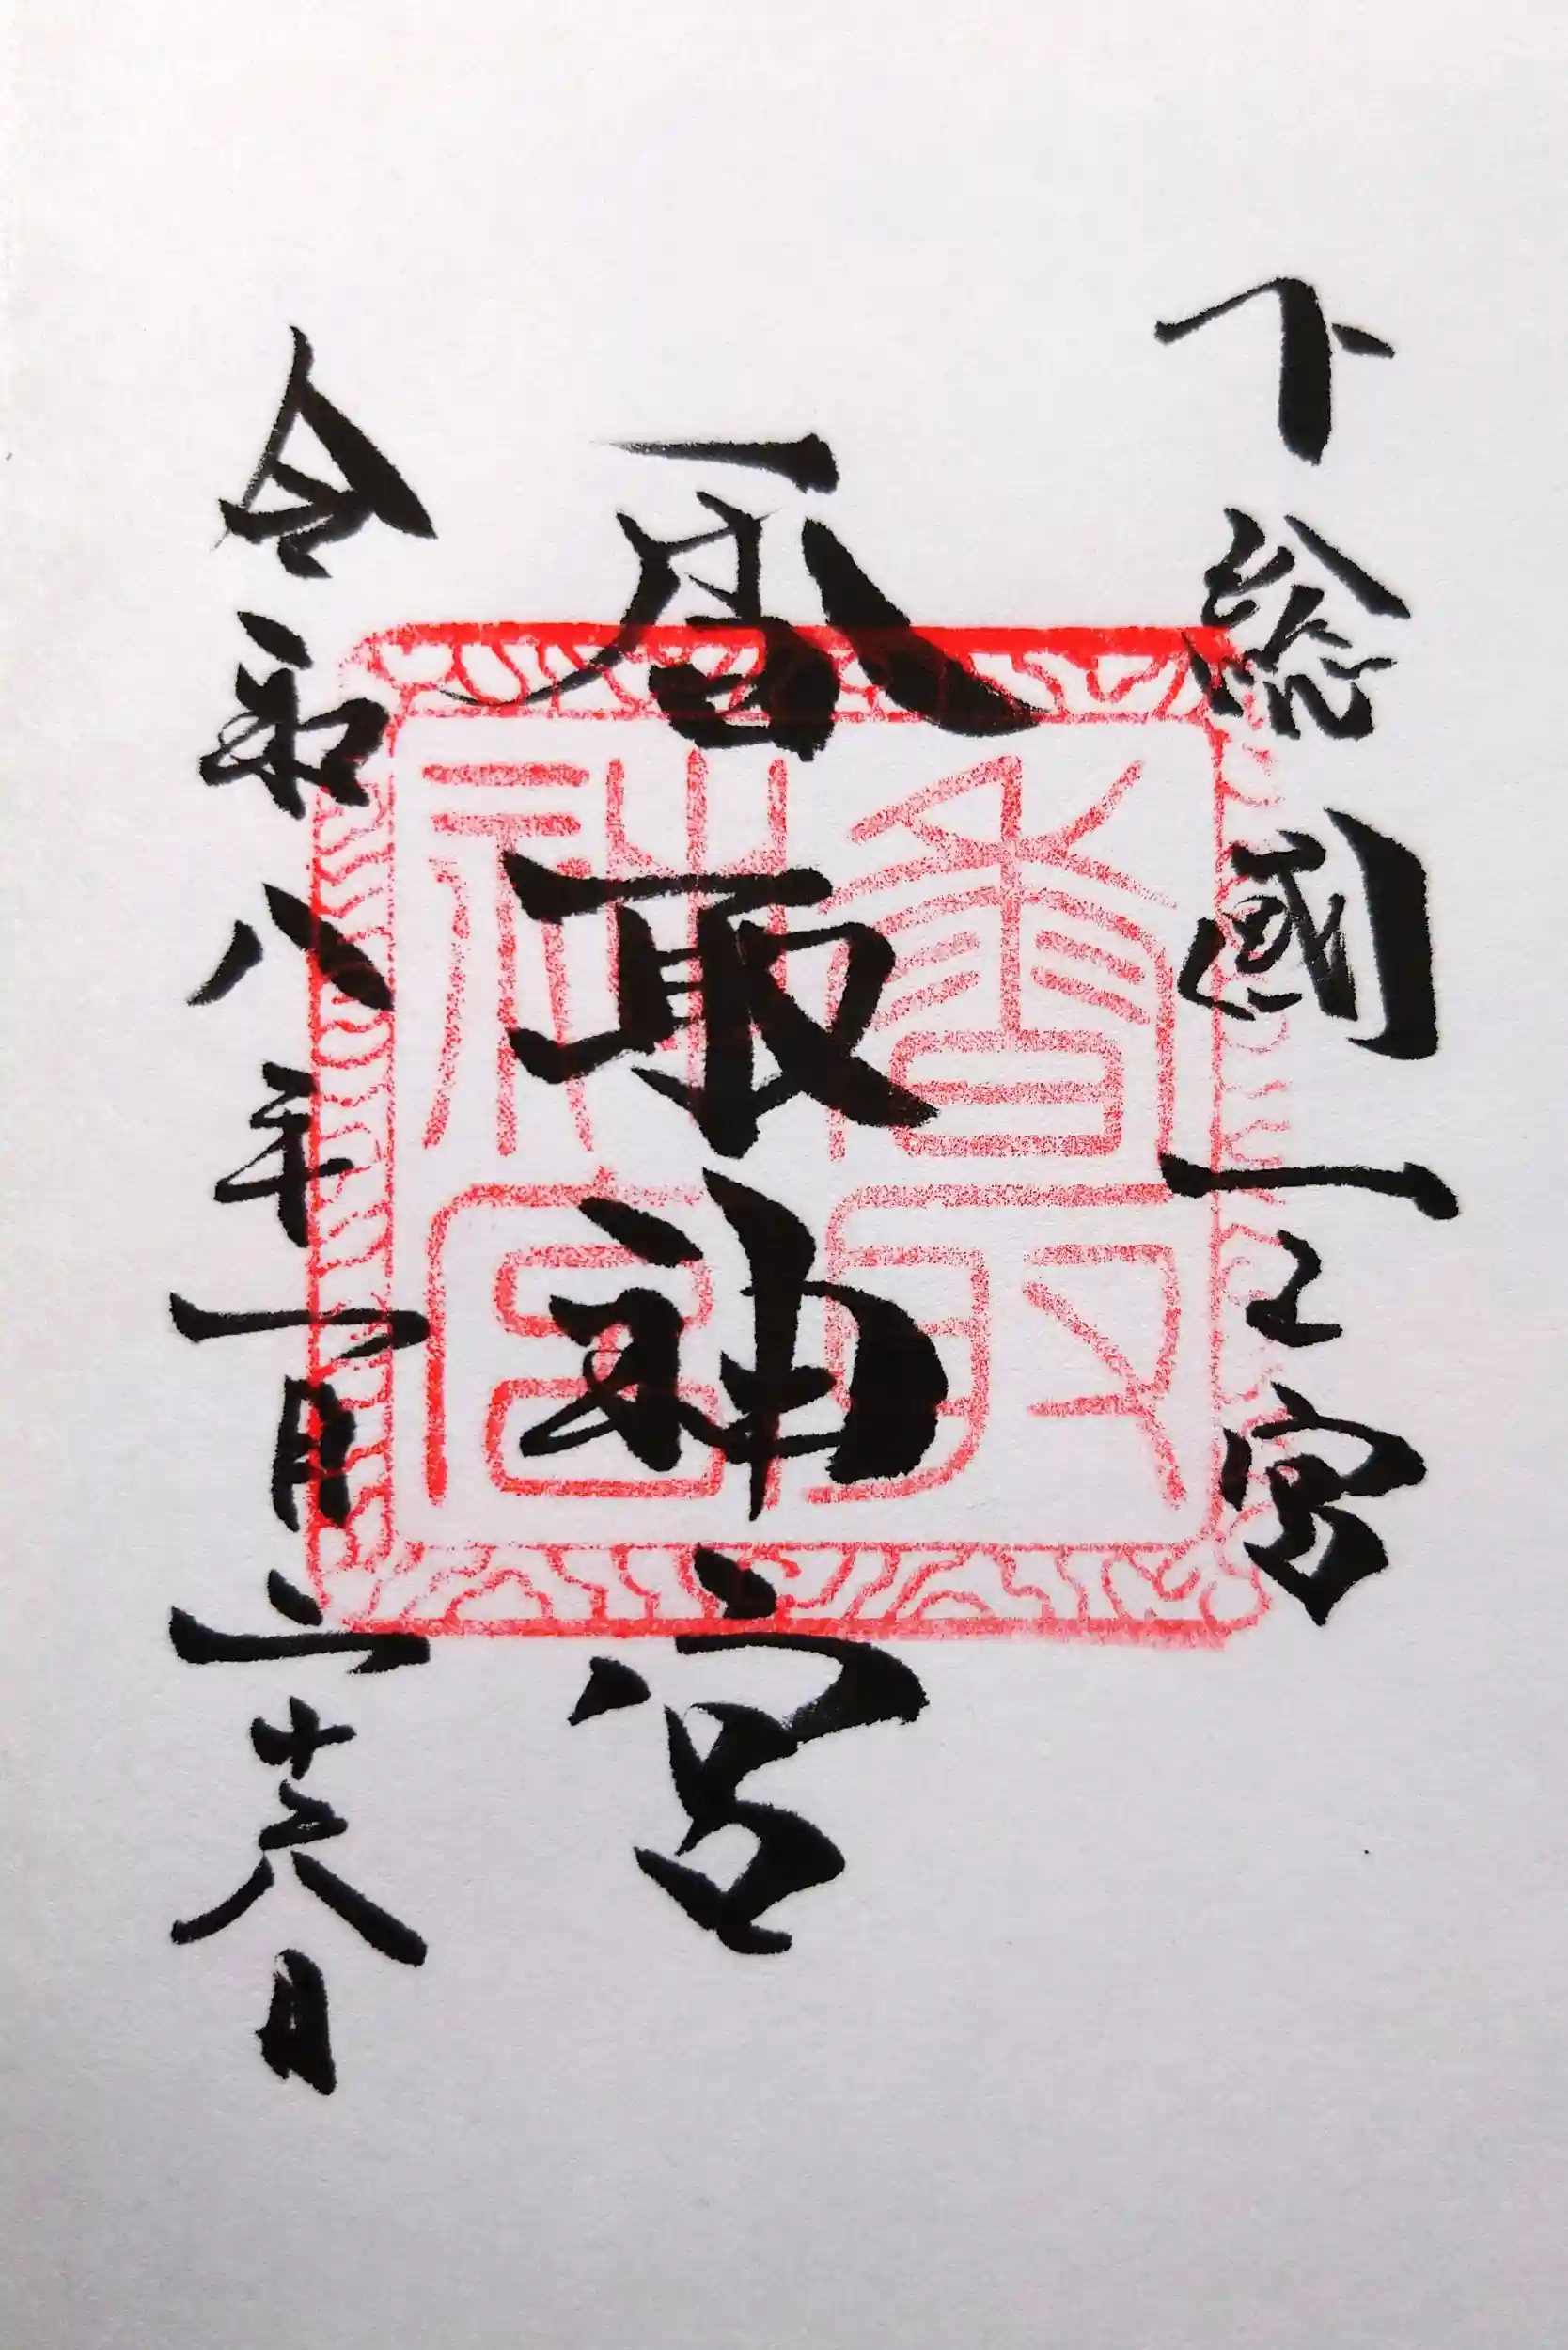 下総國一之宮
香取神宮
令和八年一月二十六日
香取
神宮